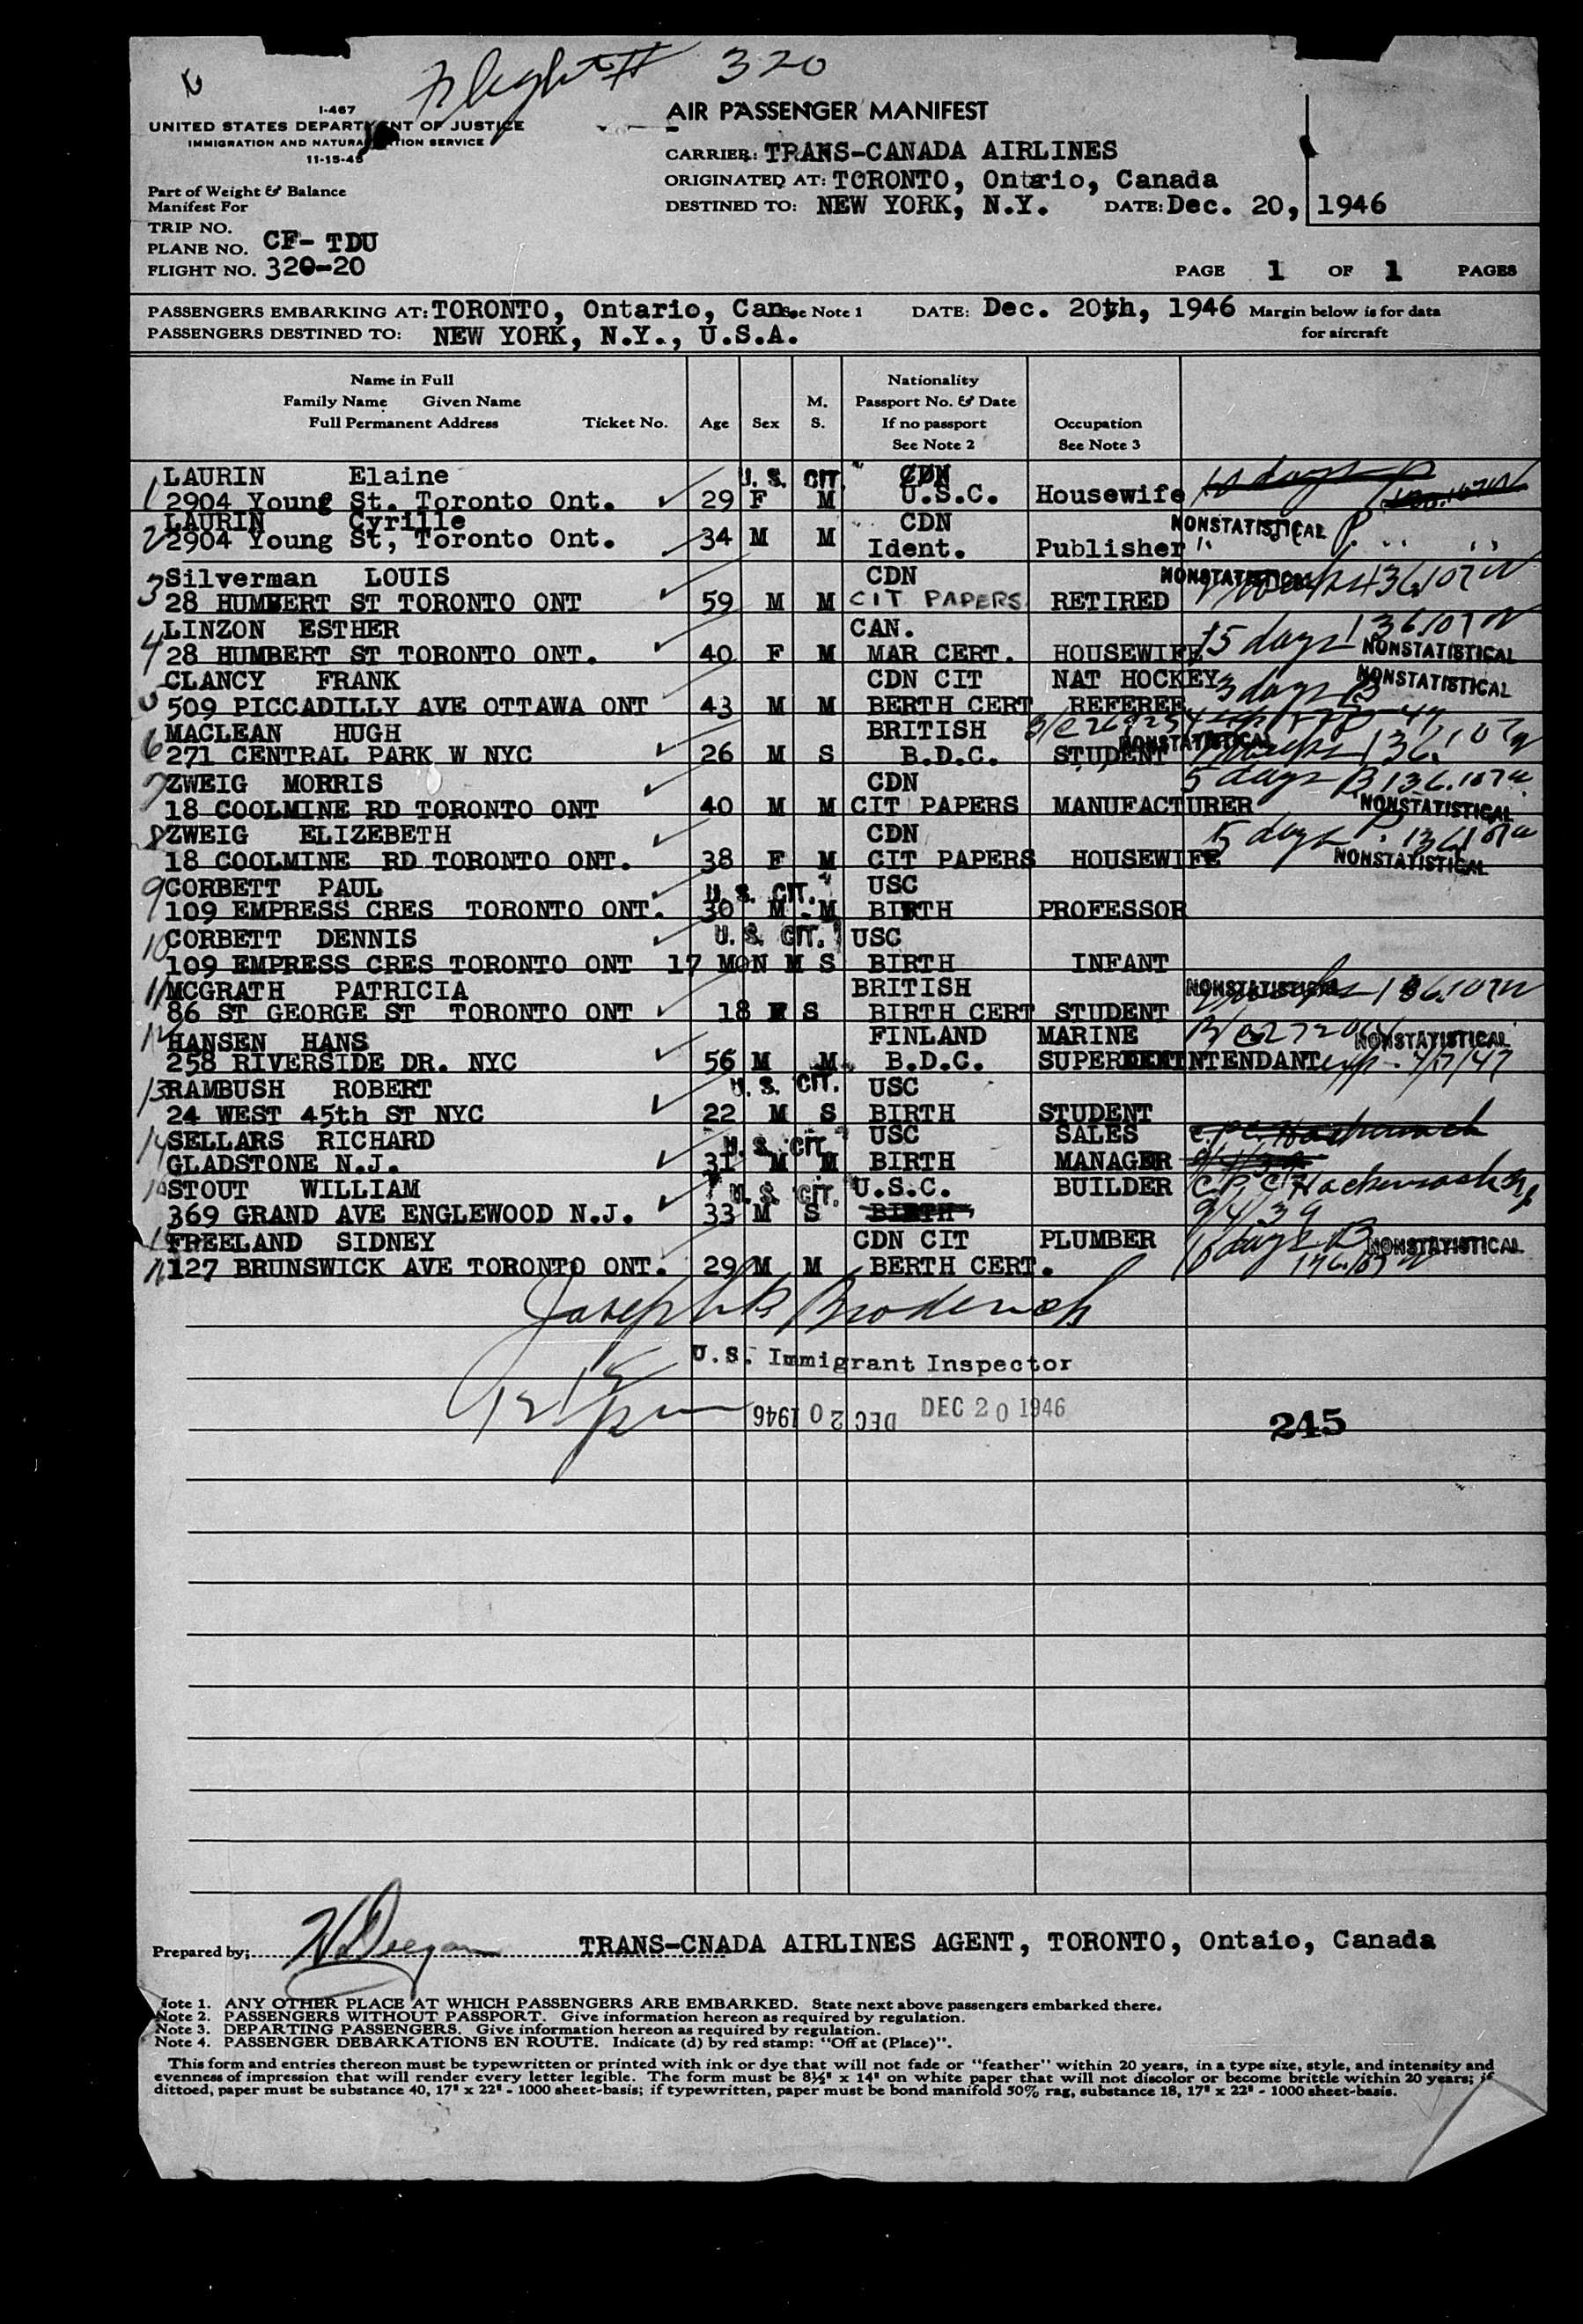 Flight # 320
I-467
UNITED STATES DEPARTMENT OF JUSTICE
IMMIGRATION AND NATURALIZATION SERVICE
11-15-45
AIR PASSENGER MANIFEST
CARRIER: TRANS-CANADA AIRLINES
ORIGINATED AT: TORONTO, Ontario, Canada
DESTINED TO: NEW YORK, N.Y. DATE: Dec. 20, 1946
Part of Weight & Balance
Manifest For
TRIP NO.
PLANE NO. CF- TDU
FLIGHT NO. 320-20
PAGE 1 OF 1 PAGES
PASSENGERS EMBARKING AT: TORONTO, Ontario, Can. See Note 1 DATE: Dec. 20th, 1946 Margin below is for data
PASSENGERS DESTINED TO: NEW YORK, N.Y., U.S.A. for aircraft
Name in Full Nationality
Family Name Given Name M. Passport No. & Date
Full Permanent Address Ticket No. Age Sex S. If no passport Occupation
See Note 2 See Note 3
1 LAURIN Elaine U. S. CIT. CDN
2904 Young St. Toronto Ont. 29 F M U.S.C. Housewife 10 days
2 LAURIN Cyrille CDN NONSTATISTICAL P.
2904 Young St, Toronto Ont. 34 M M Ident. Publisher
3 Silverman LOUIS CDN NONSTATISTICAL
28 HUMBERT ST TORONTO ONT 59 M M CIT PAPERS RETIRED
4 LINZON ESTHER CAN. 15 days
28 HUMBERT ST TORONTO ONT. 40 F M MAR CERT. HOUSEWIFE NONSTATISTICAL
5 CLANCY FRANK CDN CIT NAT HOCKEY 3 days B NONSTATISTICAL
509 PICCADILLY AVE OTTAWA ONT 43 M M BERTH CERT REFEREE
6 MACLEAN HUGH BRITISH
271 CENTRAL PARK W NYC 26 M S B.D.C. STUDENT NONSTATISTICAL
7 ZWEIG MORRIS CDN 5 days B
18 COOLMINE RD TORONTO ONT 40 M M CIT PAPERS MANUFACTURER NONSTATISTICAL
8 ZWEIG ELIZEBETH CDN 5 days
18 COOLMINE RD TORONTO ONT. 38 F M CIT PAPERS HOUSEWIFE NONSTATISTICAL
9 CORBETT PAUL U. S. CIT. USC
109 EMPRESS CRES TORONTO ONT. 30 M M BIRTH PROFESSOR
10 CORBETT DENNIS U. S. CIT. USC
109 EMPRESS CRES TORONTO ONT 17 MON M S BIRTH INFANT
11 MCGRATH PATRICIA BRITISH NONSTATISTICAL
86 ST GEORGE ST TORONTO ONT 18 F S BIRTH CERT STUDENT
12 HANSEN HANS FINLAND MARINE NONSTATISTICAL
258 RIVERSIDE DR. NYC 56 M M B.D.C. SUPERINTENDANT
13 RAMBUSH ROBERT U. S. CIT. USC
24 WEST 45th ST NYC 22 M S BIRTH STUDENT
14 SELLARS RICHARD U. S. CIT. USC SALES
GLADSTONE N.J. 31 M M BIRTH MANAGER
STOUT WILLIAM U. S. CIT. U.S.C. BUILDER C.P.C. Hackensack
369 GRAND AVE ENGLEWOOD N.J. 33 M S BIRTH 9/4/39
FREELAND SIDNEY CDN CIT PLUMBER 10 days B NONSTATISTICAL
127 BRUNSWICK AVE TORONTO ONT. 29 M M BERTH CERT.
Joseph Broderick
U.S. Immigrant Inspector
DEC 20 1946 DEC 20 1946
245
Prepared by; TRANS-CNADA AIRLINES AGENT, TORONTO, Ontaio, Canada
Note 1. ANY OTHER PLACE AT WHICH PASSENGERS ARE EMBARKED. State next above passengers embarked there.
Note 2. PASSENGERS WITHOUT PASSPORT. Give information hereon as required by regulation.
Note 3. DEPARTING PASSENGERS. Give information hereon as required by regulation.
Note 4. PASSENGER DEBARKATIONS EN ROUTE. Indicate (d) by red stamp: "Off at (Place)".
This form and entries thereon must be typewritten or printed with ink or dye that will not fade or "feather" within 20 years, in a type size, style, and intensity and
evenness of impression that will render every letter legible. The form must be 8½" x 14" on white paper that will not discolor or become brittle within 20 years; if
dittoed, paper must be substance 40, 17" x 22" - 1000 sheet-basis; if typewritten, paper must be bond manifold 50% rag, substance 18, 17" x 22" - 1000 sheet-basis.